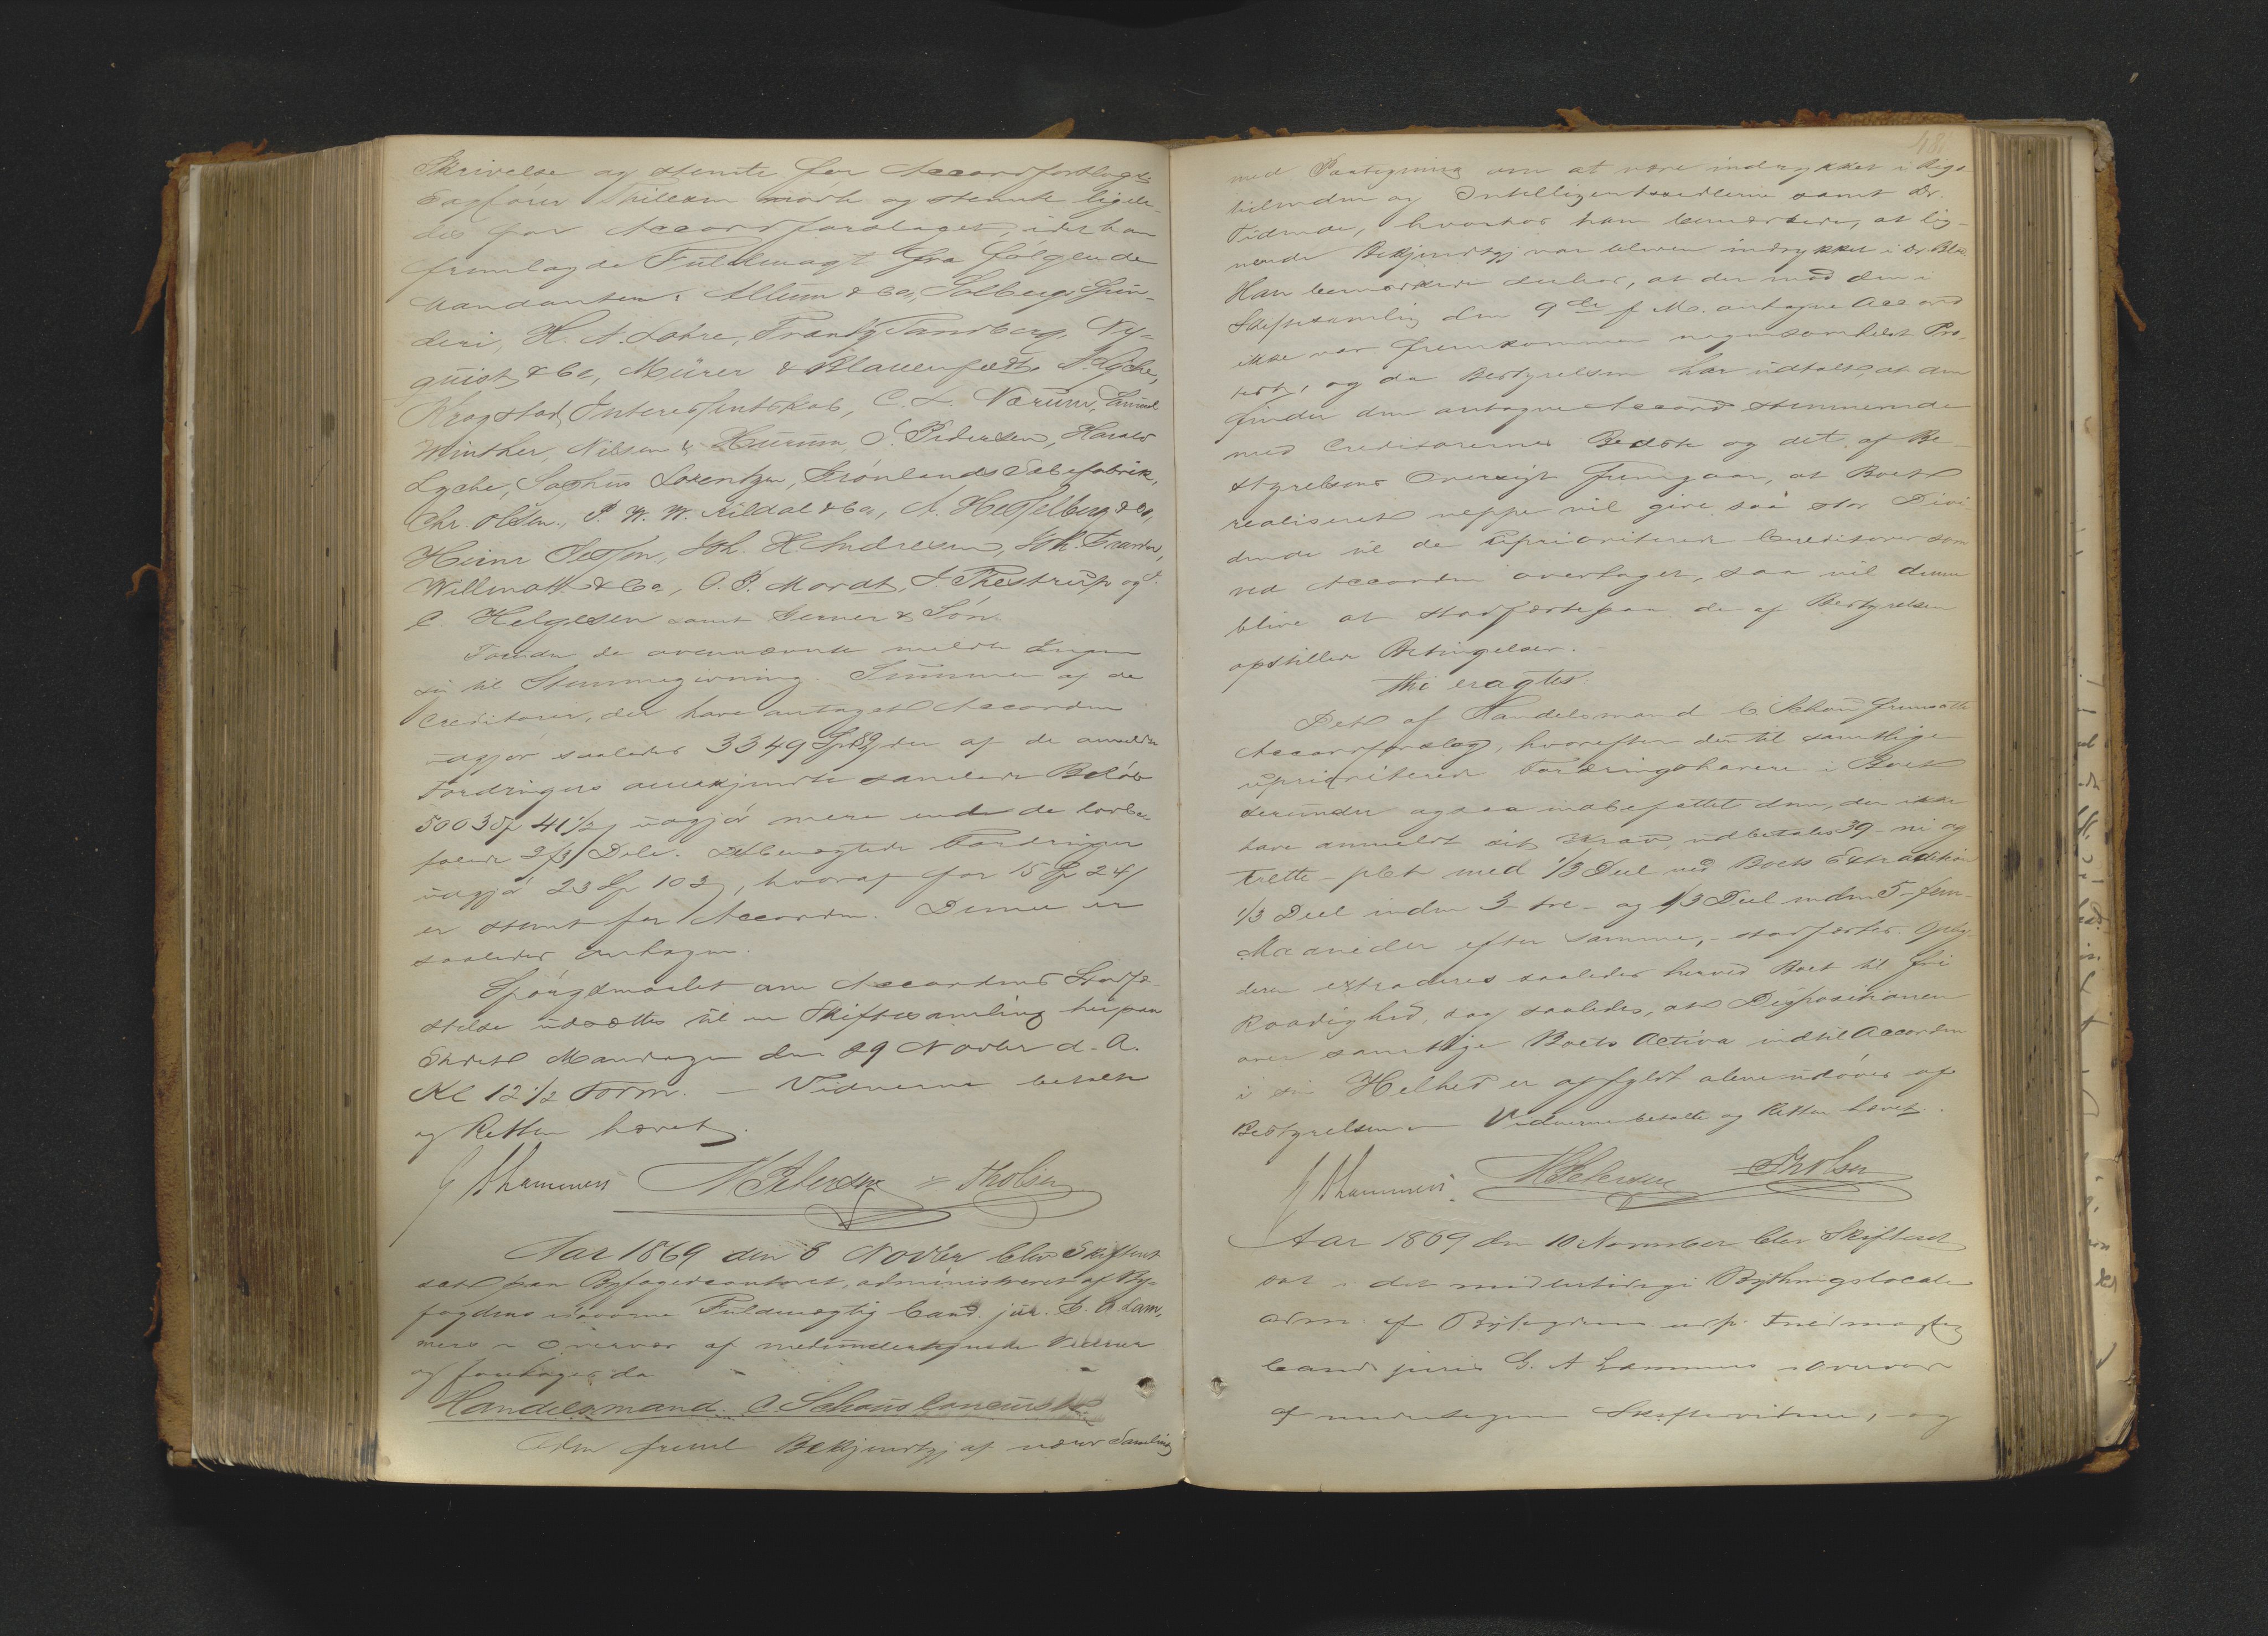 Skrivelse og stemte for Accordforslaget.
Sagfører mødte og stemte ligele-
des for Accordforslaget, idet han
fremlagde Fuldmagt fra følgende
Mandanter: Allum & Co, Solberg Spin-
deri, H. A. Lohre, Frantz Tandberg, Ny-
quist & Co, Mürer & Blauenfeldt, N. Lyche,
Krogstad Interessentskab, C. L. Nærum, Samuel
Winther, Nilsen & Hurum, S. Pedersen, Harald
Lyche, Sophus Lorentzen, Grønlands Sæbefabrik,
Chr. Olsen, P. W. W. Kildal & Co, A. Hesselberg & Co,
Heinr Jessen, Joh. H. Andresen, Joh.
Willmott & Co, O. P. Mordt, J Thestrup og
C. Helgesen samt Jerner & Søn.
Foruden de ovennævnte meldte Ingen
sig til Stemmegivning. Summen af de
Creditorer, der have antaget Accorden
udgjør saaledes 3349 Spd 89 der af de anmeldte
Fordringers anerkjendte samlede Beløb
5003 Sp 41½ udgjør mere end de lovbe-
falede 2/3 Dele. Fordringer
udgjør 23 Sp 102, hvoraf for 15 Sp 24
er stemt for Accorden. Denne er
saaledes antagen.
Spørgsmaalet om Accordens Stadfæ-
stelse udsættes til en Skiftesamling heipaa
Stedet Mandagen den 29 Novbr d. A.
Kl 12½ Form. — Vidnerne betalte
og Retten hævet.
G A Lammers N Petersen Th Olsen
Aar 1869 den 8 Novbr blev Skifteret
sat paa Byfogedcontoret, administreret af By-
fogdens Fuldmægtig Cand. jur. G. A Lam-
mers i Overvær af medunderskrevne Vidner
og foretoges da
Handelsmand C Schous Concursbo.
Adm freml Bekjendtgj af nærv Samling
481
med Paategning om at være indrykket i Rigs
tidenden og Intelligentssedlerne samt Dr.
Tidende, hvorhos han bemærkede, at lig-
nende Bekjendtgj var bleven indrykket i Dr. Blad.
Han bemærkede derhos, at der mod den i
Skiftesamling den 9de f M. antagne Accord
ikke var fremkommen nogensomhelst Pro-
test, og da Bestyrelsen har udtalt, at den
finder den antagne Accord stemmende
med Creditorernes Bedste og det af Be-
styrelsens Oversigt fremgaar, at Boet
realiseret neppe vil give saa stor Divi-
dende til de uprioriterede Creditorer som
ved Accorden overtaget, saa vil denne
blive at stadfæste paa de af Bestyrelsen
opstillede Betingelser.
Thi eragtes:
Det af Handelsmand C Schou fremsatte
Accordforslag, hvorefter der til samtlige
uprioriterede Fordringshavere i Boet
derunder ogsaa indbefattet dem, der ikke
have anmeldt sit Krav, udbetales 39 - ni og
trette - pCt med 1/3 Deel ved Boets Extradition
1/3 Deel inden 3 - tre - og 1/3 Deel inden 5 - fem -
Maaneder efter samme, - stadfæstes.
extraderes saaledes herved Boet til fri
Raadighed, dog saaledes, at Dispositionen
over samtlige Boets Activa indtil Accorden
i sin Helhed er opfyldt alene udøves af
Bestyrelsen. — Vidnerne betalte og Retten hævet.
G A Lammers. N Petersen Th Olsen
Aar 1869 den 10 November blev Skifteret
sat i det midlertidige Bythingslocale
adm. af Byfogdens Fuldmægtig
Cand juris G. A Lammers i Overvær
af Skiftevidner, og